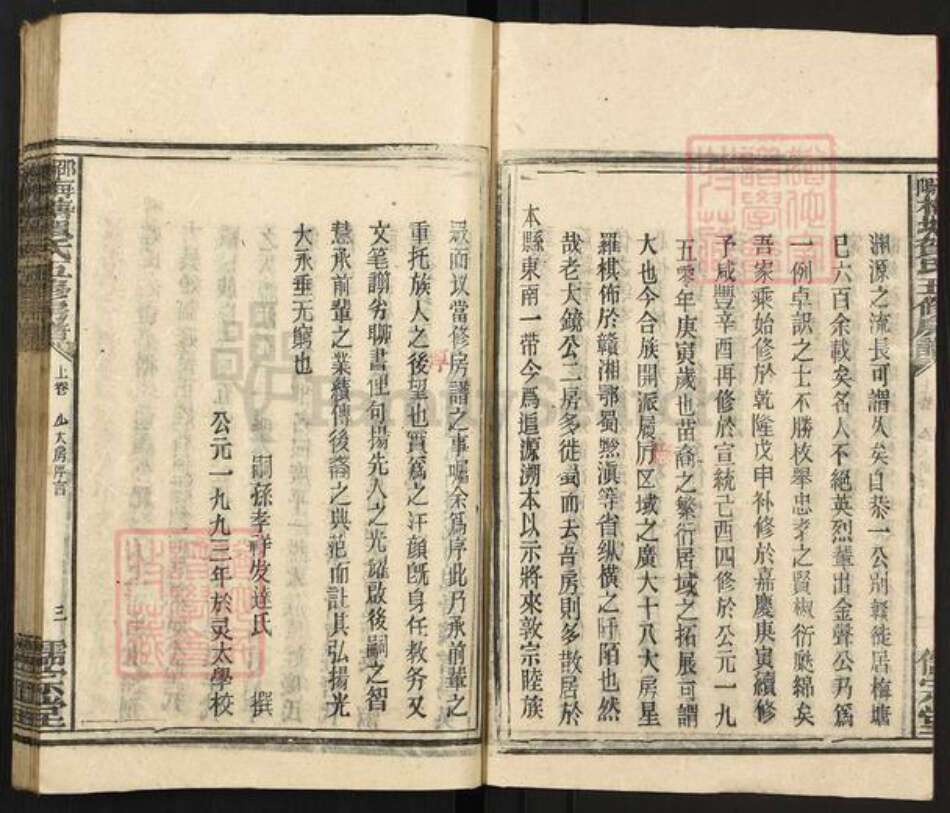 淵源之流長可謂久矣自恭一公别贛徙居梅塘
已六百余載矣名人不絕英烈輩出金聲公乃爲
一例卓識之士不勝枚舉忠孝之賢椒衍瓞綿矣
吾家乘始修於乾隆戊申补修於嘉慶庚寅續修
于咸豐辛酉再修於宣統己酉四修於公元一九
五零年庚寅歲也苗裔之繁衍居域之拓展可謂
大也今合族開派履厉区域之廣大十八大房星
羅棋佈於贛湘鄂蜀黔滇等省纵橫之阡陌也然
哉老大鏡公二房多徙蜀而去吾房則多散居於
本縣東南一帶今爲追源溯本以示將來敦宗睦族
衆而以當修房譜之事囑余爲序此乃承前輩之
重托族人之後望也實爲之汗顔既身任教务又
文笔謝劣聊書俚句揚先人之光耀啟後嗣之智
慧承前輩之業績傳後裔之典范而註其弘揚光
大永垂无窮也
嗣孫孝祥发達氏 撰
公元一九九三年於灵太學校
氏五修房譜
上卷
大房序言
三